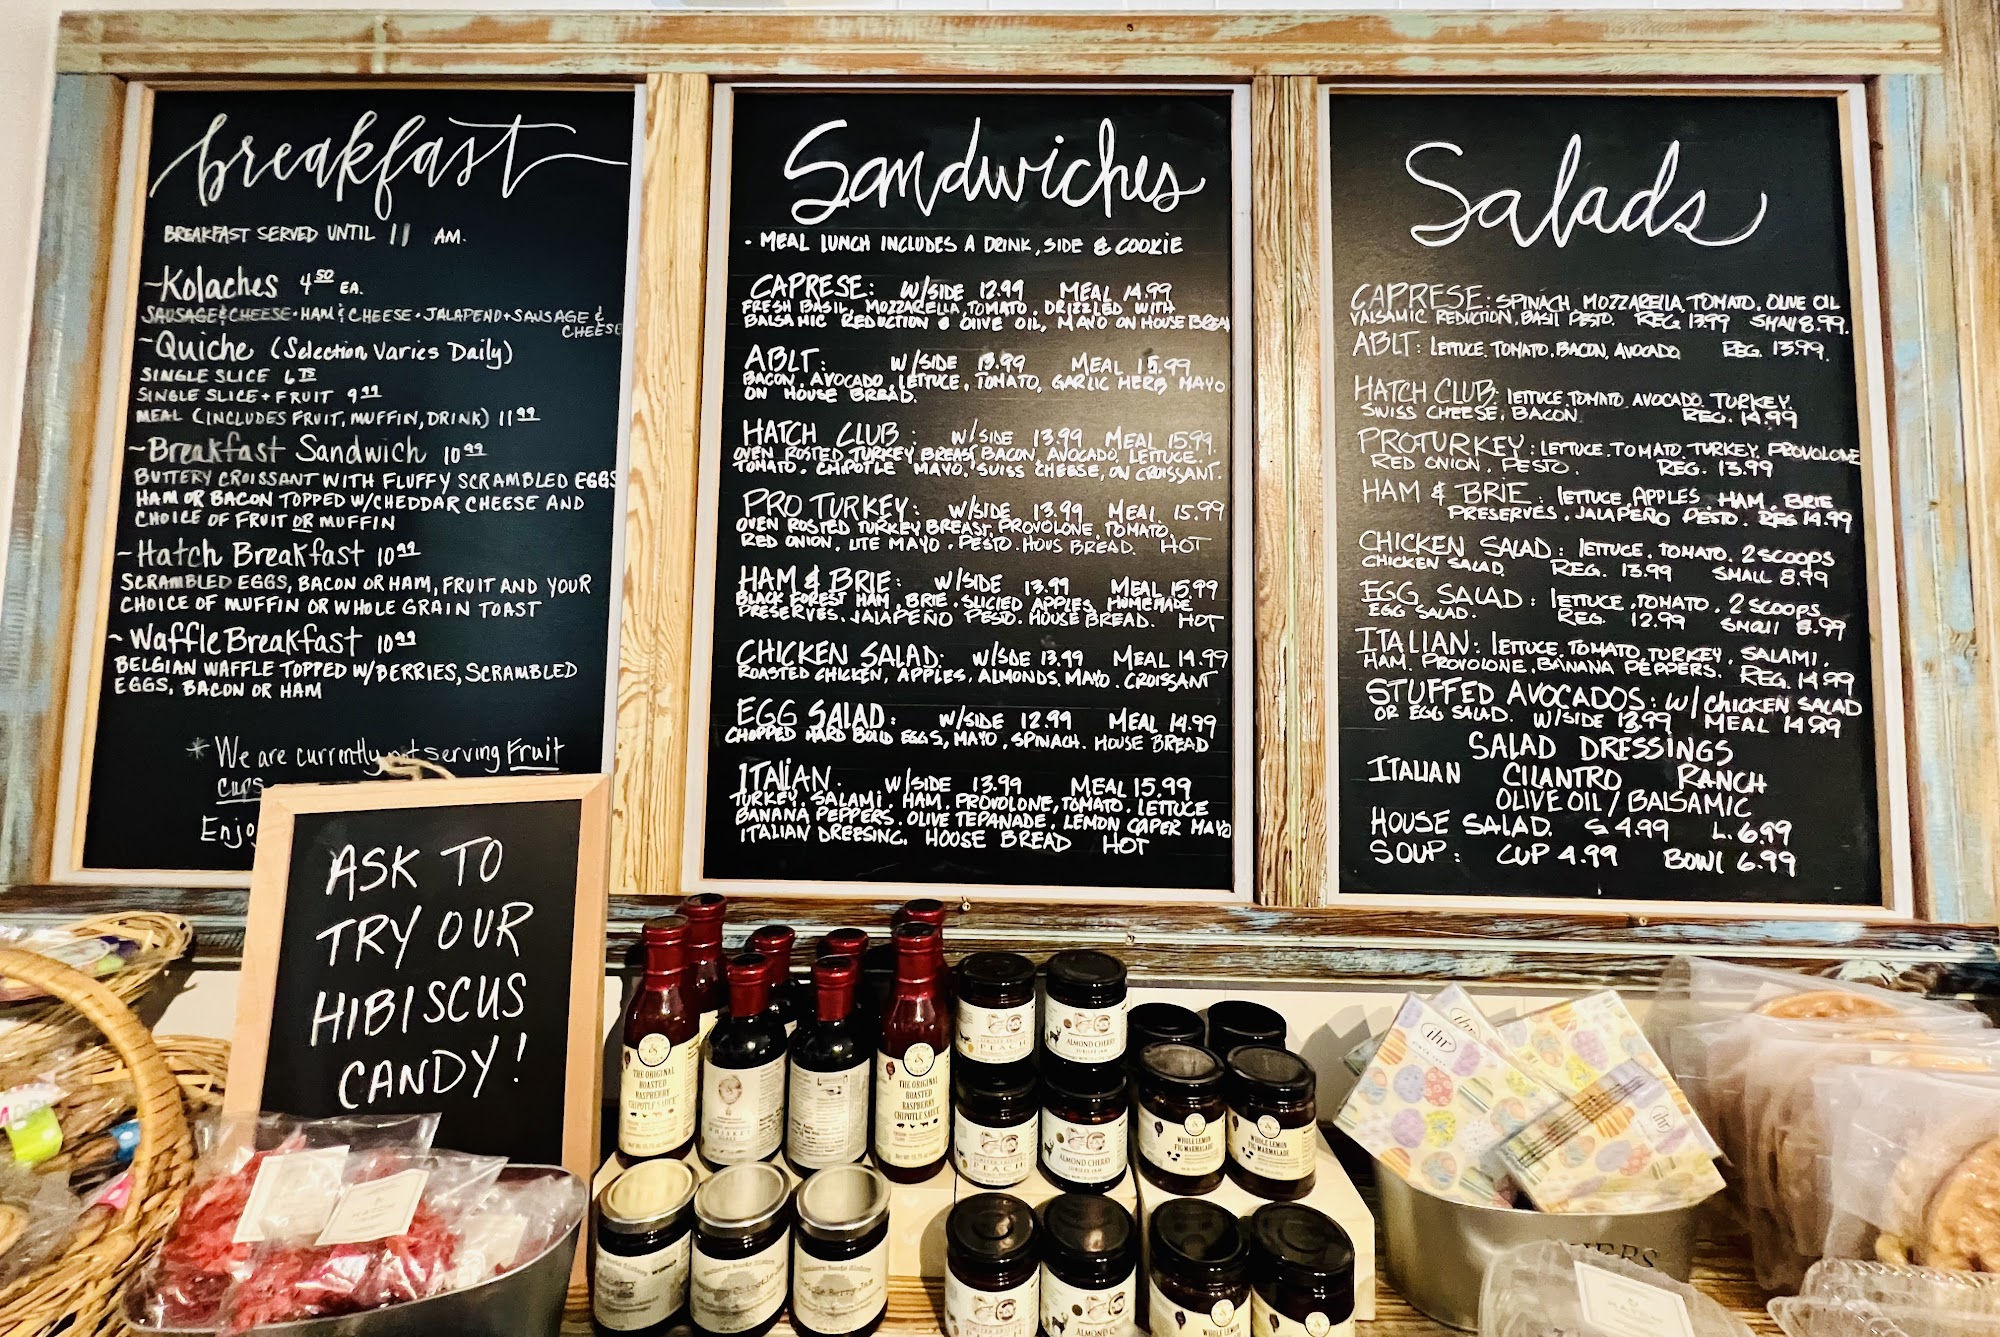 breakfast
BREAKFAST SERVED UNTIL 11 AM.
~Kolaches 4 50 EA.
SAUSAGE & CHEESE • HAM & CHEESE • JALAPENO + SAUSAGE &
CHEESE
~Quiche (Selection Varies Daily)
SINGLE SLICE 6 75
SINGLE SLICE + FRUIT 9 99
MEAL (INCLUDES FRUIT, MUFFIN, DRINK) 11 99
~Breakfast Sandwich 10 99
BUTTERY CROISSANT WITH FLUFFY SCRAMBLED EGGS
HAM OR BACON TOPPED W/CHEDDAR CHEESE AND
CHOICE OF FRUIT OR MUFFIN
~Hatch Breakfast 10 99
SCRAMBLED EGGS, BACON OR HAM, FRUIT AND YOUR
CHOICE OF MUFFIN OR WHOLE GRAIN TOAST
~Waffle Breakfast 10 99
BELGIAN WAFFLE TOPPED W/BERRIES, SCRAMBLED
EGGS, BACON OR HAM
* We are currently not serving Fruit
Cups
Sandwiches
• MEAL LUNCH INCLUDES A DRINK, SIDE & COOKIE
CAPRESE: W/SIDE 12.99 MEAL 14.99
FRESH BASIL, MOZZARELLA, TOMATO. DRIZZLED WITH
BALSAMIC REDUCTION & OLIVE OIL, MAYO ON HOUSE BREAD
ABLT: W/SIDE 13.99 MEAL 15.99
BACON, AVOCADO, LETTUCE, TOMATO, GARLIC HERB MAYO
ON HOUSE BREAD.
HATCH CLUB: W/SIDE 13.99 MEAL 15.99.
OVEN ROSTED TURKEY BREAST BACON, AVOCADO, LETTUCE.
TOMATO. CHIPOTLE MAYO, SUISS CHEESE, ON CROISSANT.
PRO TURKEY: W/SIDE 13.99 MEAL 15.99
OVEN ROSTED TURKEY BREAST, PROVOLONE, TOMATO,
RED ONION, LITE MAYO. PESTO. HOUS BREAD. HOT
HAM & BRIE: W/SIDE 13.99 MEAL 15.99
BLACK FOREST HAM, BRIE. SLICIED APPLES, HOMEMADE
PRESERVES. JALAPEÑO PESTO. HOUSE BREAD. HOT
CHICKEN SALAD: W/SIDE 13.99 MEAL 14.99
ROASTED CHICKEN, APPLES, ALMONDS. MAYO. CROISSANT
EGG SALAD: W/SIDE 12.99 MEAL 14.99
CHOPPED HARD BOLD EGGS, MAYO, SPINACH. HOUSE BREAD
ITALIAN. W/SIDE 13.99 MEAL 15.99
TURKEY. SALAMI. HAM. PROVOLONE, TOMATO. LETTUCE
BANANA PEPPERS. OLIVE TEPANADE, LEMON CAPER MAYO
ITALIAN DREESING. HOOSE BREAD HOT
Salads
CAPRESE: SPINACH, MOZZARELLA, TOMATO. OLIVE OIL
VALSAMIC REDUCTION, BASIL PESTO. REG. 13.99 SMALL 8.99.
ABLT: LETTUCE, TOMATO, BACON, AVOCADO REG. 13.99.
HATCH CLUB: LETTUCE, TOMATO, AVOCADO, TURKEY.
SWISS CHEESE, BACON REG. 14.99
PROTURKEY: LETTUCE. TOMATO, TURKEY, PROVOLONE
RED ONION. PESTO. REG. 13.99
HAM & BRIE: LETTUCE, APPLES, HAM, BRIE
PRESERVES. JALAPEÑO PESTO. REG 14.99
CHICKEN SALAD: LETTUCE, TOMATO, 2 SCOOPS
CHICKEN SALAD. REG. 13.99 SMALL 8.99
EGG SALAD: LETTUCE, TOMATO, 2 SCOOPS
EGG SALAD. REG. 12.99 SMAll 8.99
ITALIAN: LETTUCE, TOMATO, TURKEY, SALAMI,
HAM. PROVOLONE, BANANA PEPPERS. REG. 14.99
STUFFED AVOCADOS: W/ CHICKEN SALAD
OR EGG SALAD. W/SIDE 13.99 MEAL 14.99
SALAD DRESSINGS
ITALIAN CILANTRO RANCH
OLIVE OIL / BALSAMIC
HOUSE SALAD. S 4.99 L. 6.99
SOUP: CUP 4.99 BOWL 6.99
ASK TO
TRY OUR
HIBISCUS
CANDY!
THE ORIGINAL
ROASTED
RASPBERRY
CHIPOTLE SAUCE
THE ORIGINAL
ROASTED
RASPBERRY
CHIPOTLE SAUCE
PEACH
ALMOND CHERRY
PEACH
ALMOND CHERRY
WHOLE LEMON
FIG MARMALADE
WHOLE LEMON
FIG MARMALADE
ihr
ihr
ihr